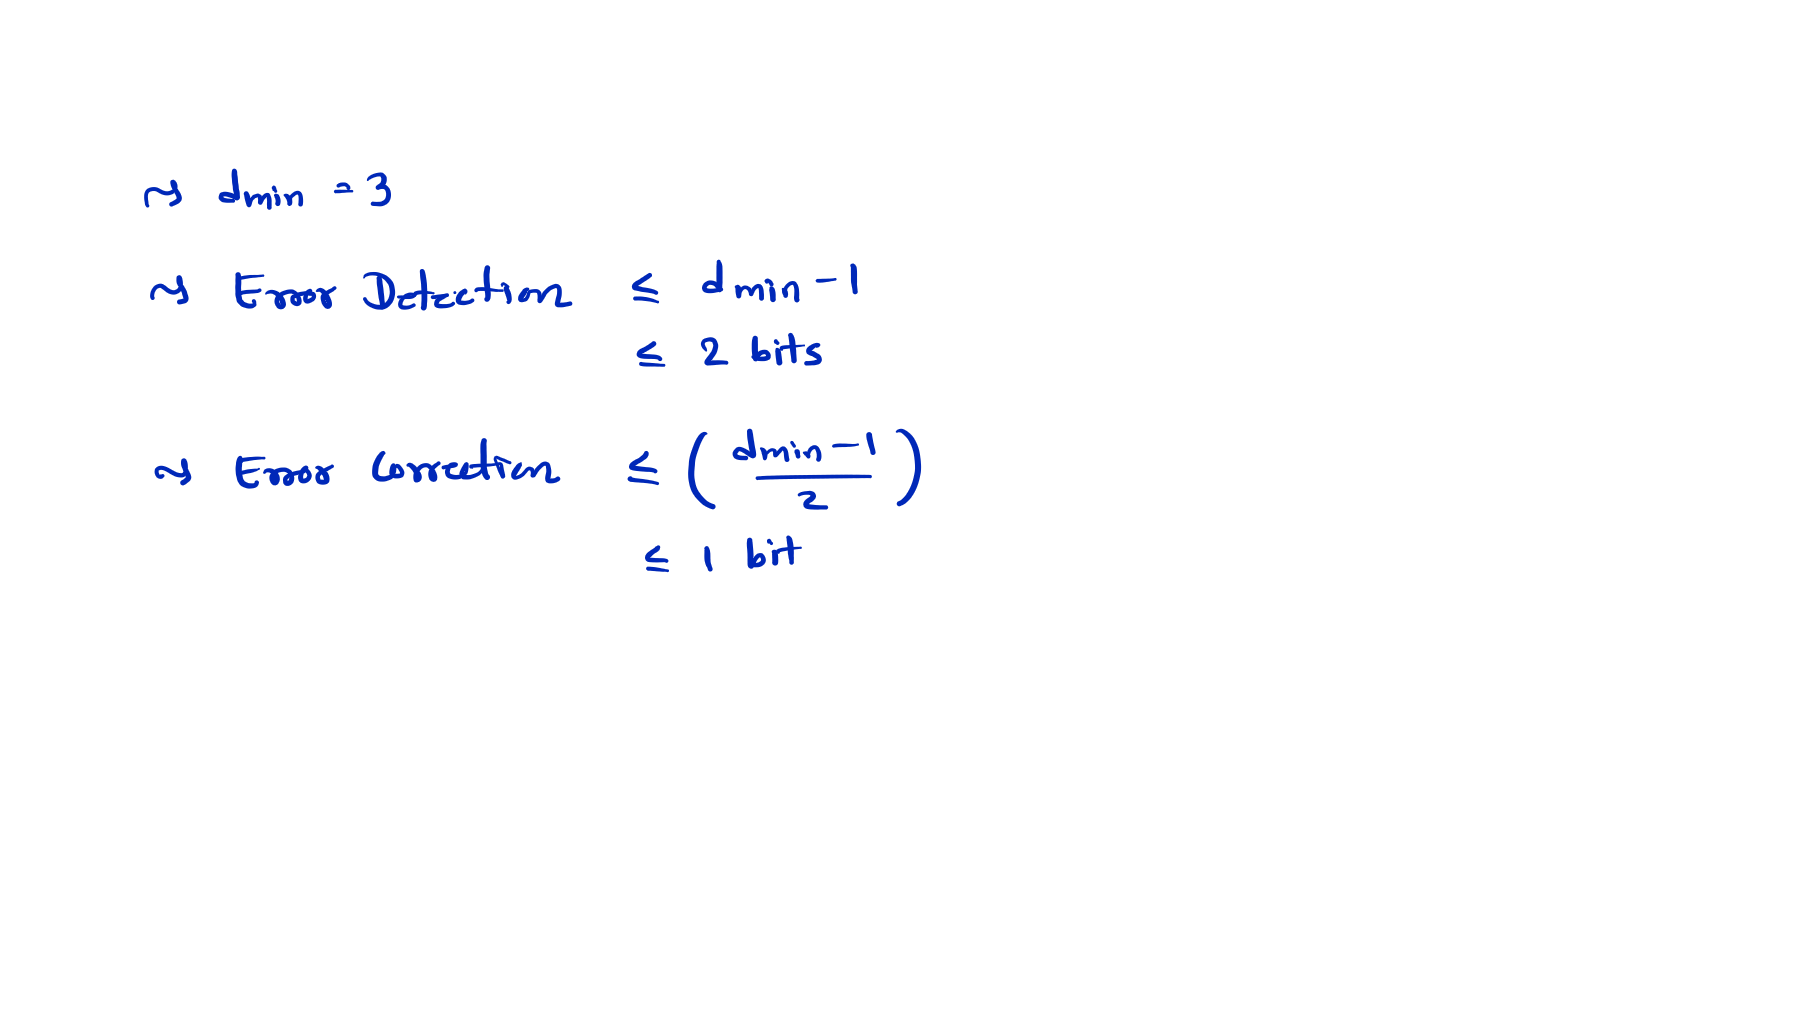 ~> dmin = 3
~> Error Detection ≤ dmin - 1
≤ 2 bits
~> Error Correction ≤ ( (dmin - 1) / 2 )
≤ 1 bit